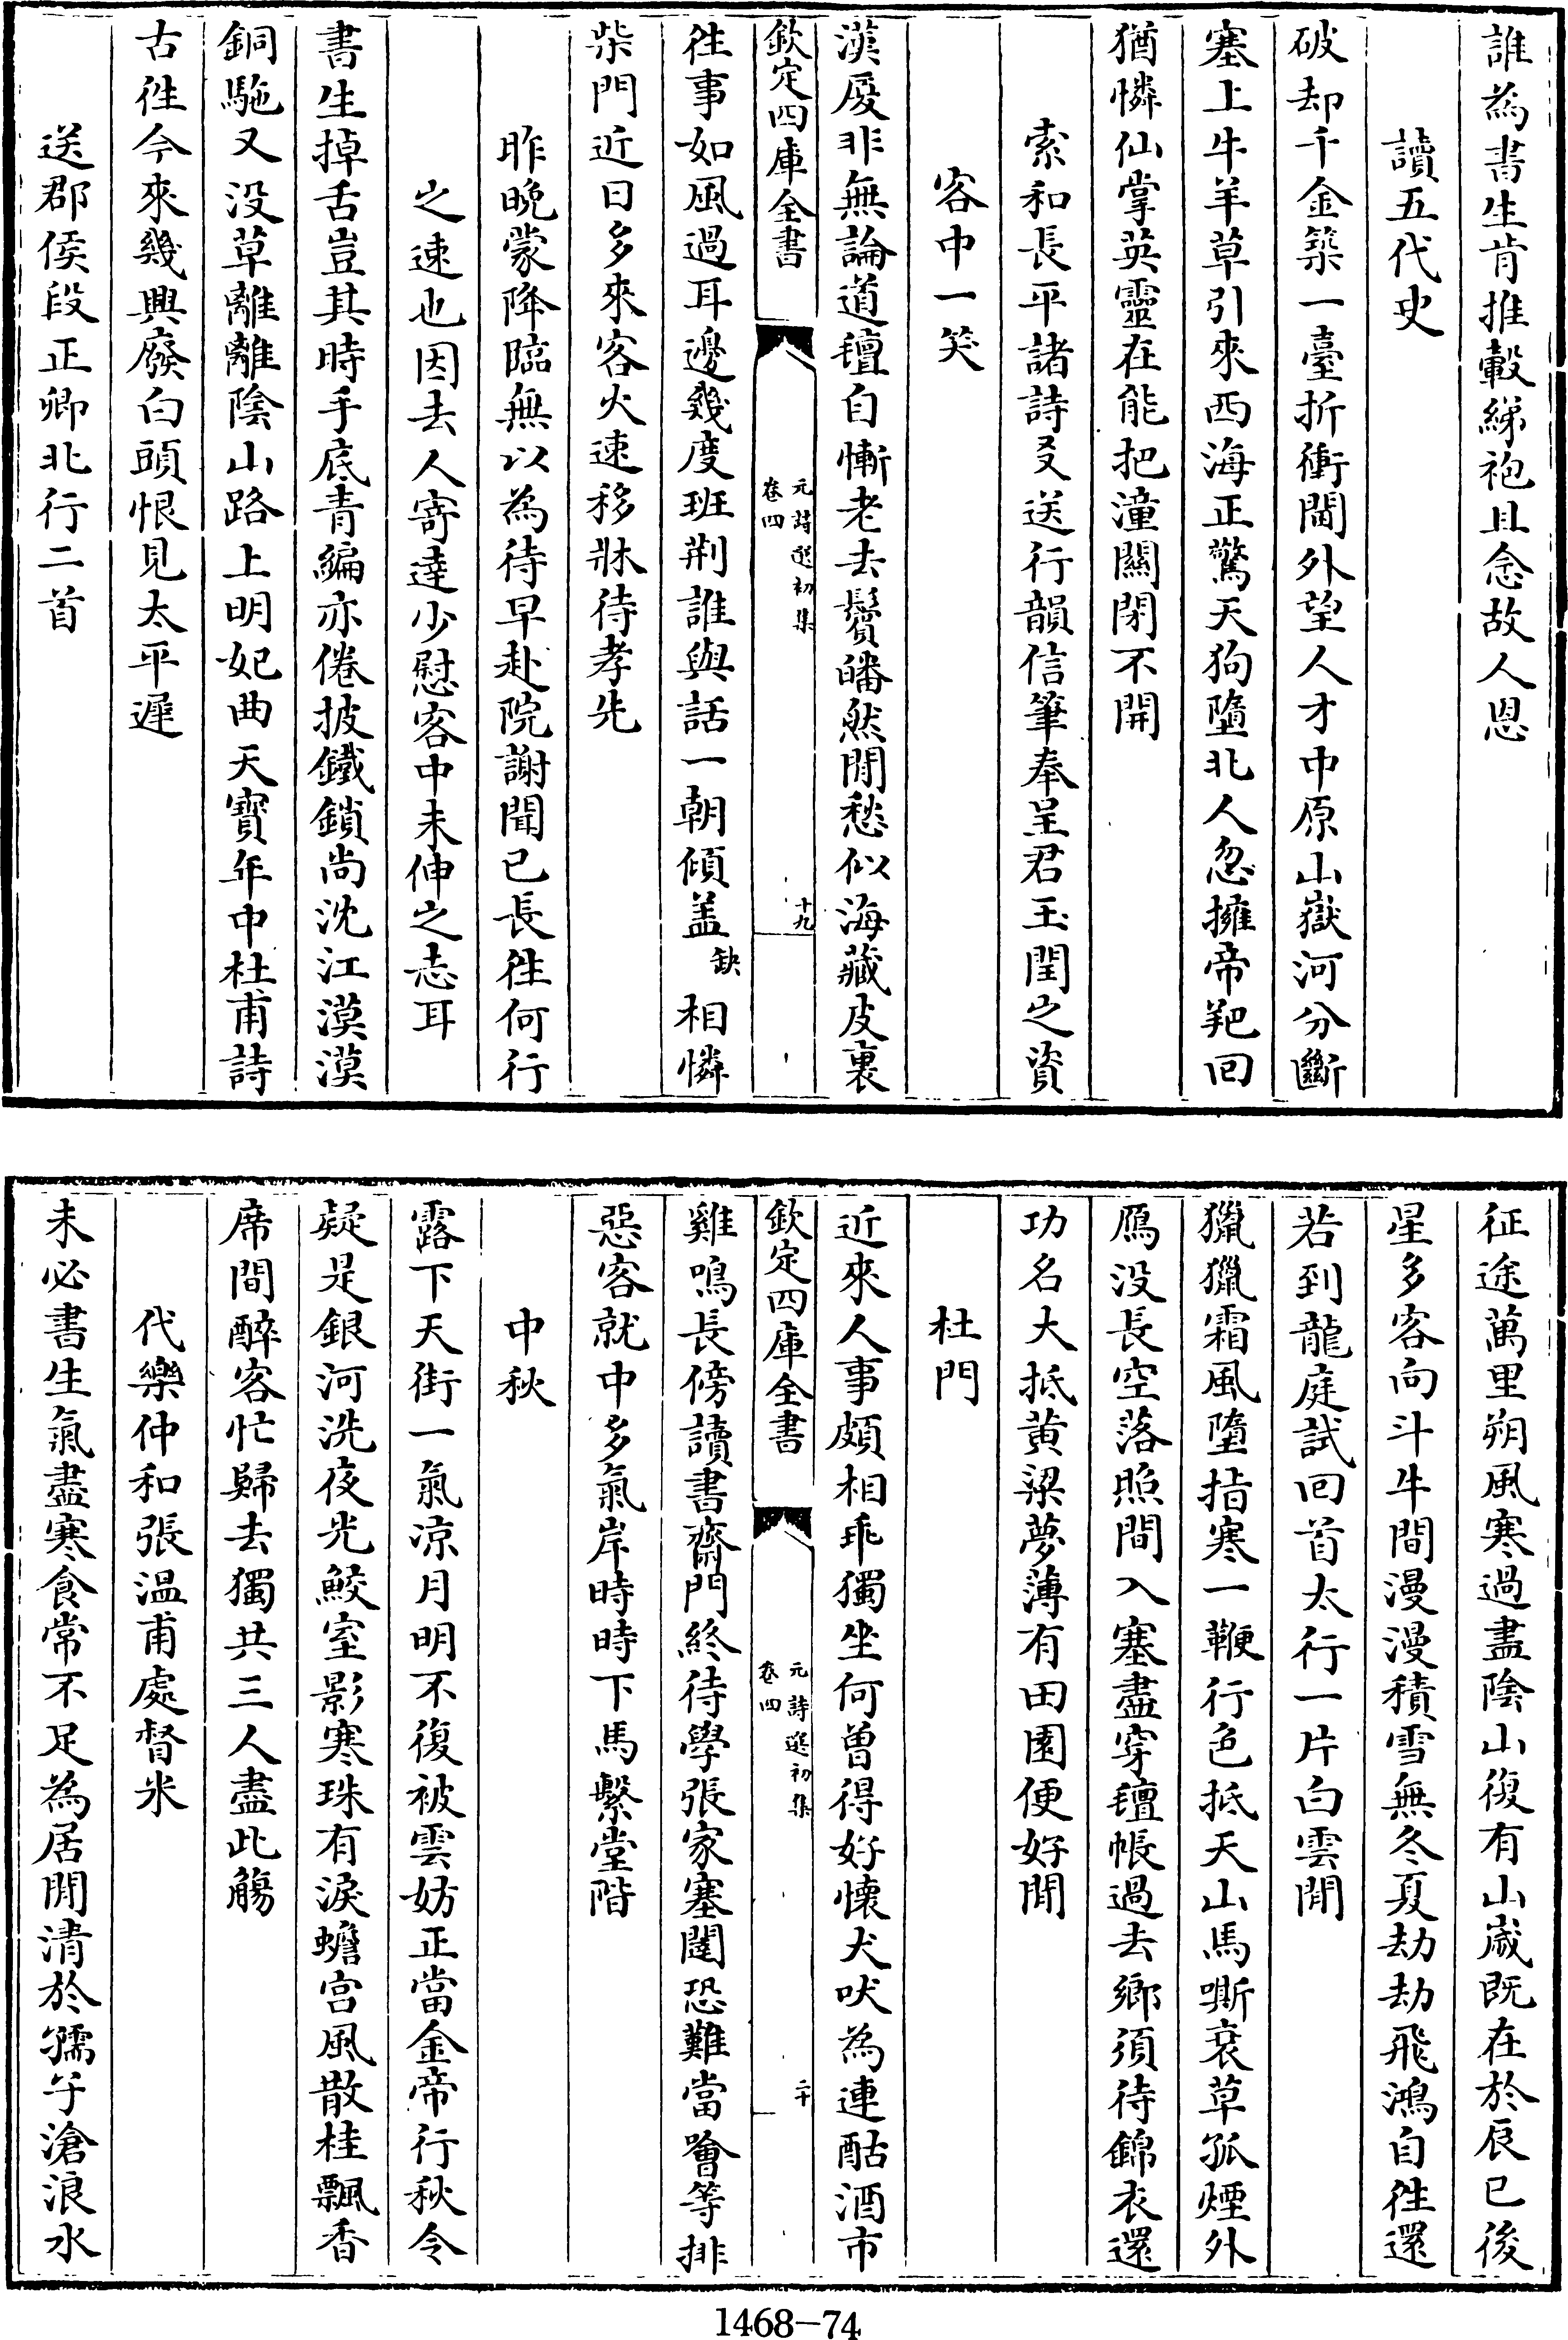 誰為書生肯推轂綈袍且念故人恩
讀五代史
破却千金築一臺折衝閫外望人才中原山嶽河分斷
塞上牛羊草引來西海正驚天狗墮北人忽擁帝羓回
猶憐仙掌英靈在能把潼關閉不開
索和長平諸詩及送行韻信筆奉呈君玉閏之資
客中一笑
漢廈非無論道氊自慚老去鬢皤然閒愁似海藏皮裏
欽定四庫全書
元詩選初集
卷四
十九
往事如風過耳邊幾度班荆誰與話一朝傾盖缺相憐
柴門近日多來客火速移牀待孝先
昨晚蒙降臨無以為待早赴院謝聞已長往何行
之速也因去人寄達少慰客中未伸之志耳
書生掉舌豈其時手底青編亦倦披鐵鎖尚沈江漠漠
銅駞又没草離離陰山路上明妃曲天寶年中杜甫詩
古往今來幾興廢白頭恨見太平遲
送郡侯段正卿北行二首
征途萬里朔風寒過盡陰山復有山歲既在於辰巳後
星多客向斗牛間漫漫積雪無冬夏劫劫飛鴻自往還
若到龍庭試回首太行一片白雲閒
獵獵霜風墮指寒一鞭行色抵天山馬嘶衰草孤煙外
鴈没長空落照間入塞盡穿氊帳過去鄉須待錦衣還
功名大抵黄粱夢薄有田園便好閒
杜門
近來人事頗相乖獨坐何曾得好懷犬吠為連酤酒市
欽定四庫全書
元詩選初集
卷四
二十
雞鳴長傍讀書齋門終待學張家塞閮恐難當噲等排
惡客就中多氣岸時時下馬繫堂階
中秋
露下天街一氣凉月明不復被雲妨正當金帝行秋令
疑是銀河洗夜光鮫室影寒珠有淚蟾宫風散桂飄香
席間醉客忙歸去獨共三人盡此觴
代樂仲和張温甫處督米
未必書生氣盡寒食常不足為居閒清於孺子滄浪水
1468-74